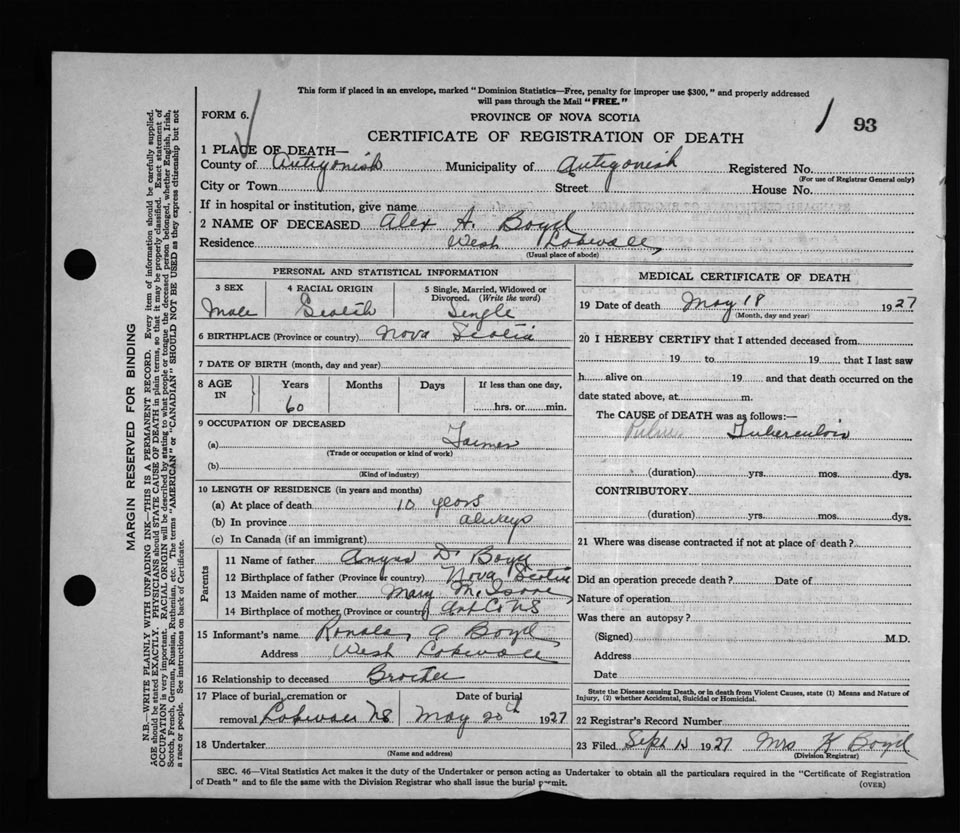 This form if placed in an envelope, marked "Dominion Statistics—Free, penalty for improper use $300," and properly addressed
will pass through the Mail "FREE."
FORM 6.
PROVINCE OF NOVA SCOTIA
93
CERTIFICATE OF REGISTRATION OF DEATH
1 PLACE OF DEATH—
County of Antigonish Municipality of Antigonish Registered No.
(For use of Registrar General only)
City or Town Street House No.
If in hospital or institution, give name
2 NAME OF DECEASED Alex A. Boyd
Residence West Lakevale
(Usual place of abode)
PERSONAL AND STATISTICAL INFORMATION
3 SEX 4 RACIAL ORIGIN 5 Single, Married, Widowed or
Divorced. (Write the word)
Male Scotch Single
6 BIRTHPLACE (Province or country) Nova Scotia
7 DATE OF BIRTH (month, day and year)
8 AGE IN Years Months Days If less than one day,
60 hrs. or min.
9 OCCUPATION OF DECEASED
(a) Farmer
(Trade or occupation or kind of work)
(b)
(Kind of industry)
10 LENGTH OF RESIDENCE (in years and months)
(a) At place of death 10 years
(b) In province always
(c) In Canada (if an immigrant)
Parents
11 Name of father Angus D. Boyd
12 Birthplace of father (Province or country) Nova Scotia
13 Maiden name of mother Mary McIsaac
14 Birthplace of mother (Province or country) Ant Co NS
15 Informant's name Ronald A Boyd
Address West Lakevale
16 Relationship to deceased Brother
17 Place of burial, cremation or Date of burial
removal Lakevale NS May 20th 1927
18 Undertaker
(Name and address)
MEDICAL CERTIFICATE OF DEATH
19 Date of death May 18 1927
(Month, day and year)
20 I HEREBY CERTIFY that I attended deceased from
19 to 19 that I last saw
h alive on 19 and that death occurred on the
date stated above, at m.
The CAUSE of DEATH was as follows:—
Tuberculois
(duration) yrs. mos. dys.
CONTRIBUTORY
(duration) yrs. mos. dys.
21 Where was disease contracted if not at place of death?
Did an operation precede death? Date of
Nature of operation
Was there an autopsy?
(Signed) M.D.
Address
Date
State the Disease causing Death, or in death from Violent Causes, state (1) Means and Nature of
Injury, (2) whether Accidental, Suicidal or Homicidal.
22 Registrar's Record Number
23 Filed Sept 1927 Mrs K Boyd
(Division Registrar)
SEC. 46—Vital Statistics Act makes it the duty of the Undertaker or person acting as Undertaker to obtain all the particulars required in the "Certificate of Registration
of Death" and to file the same with the Division Registrar who shall issue the burial permit.
(OVER)
MARGIN RESERVED FOR BINDING
N.B.—WRITE PLAINLY WITH UNFADING INK—THIS IS A PERMANENT RECORD. Every item of information should be carefully supplied.
AGE should be stated EXACTLY. PHYSICIANS should STATE CAUSE OF DEATH in plain terms, so that it may be properly classified. Exact statement of
OCCUPATION is very important. RACIAL ORIGIN will be described by stating to what people or tongue the deceased person belonged, whether English, Irish,
Scotch, French, German, Russian, Ruthenian, etc. The terms "AMERICAN" or "CANADIAN" SHOULD NOT BE USED as they express citizenship but not
a race or people. See instructions on back of Certificate.